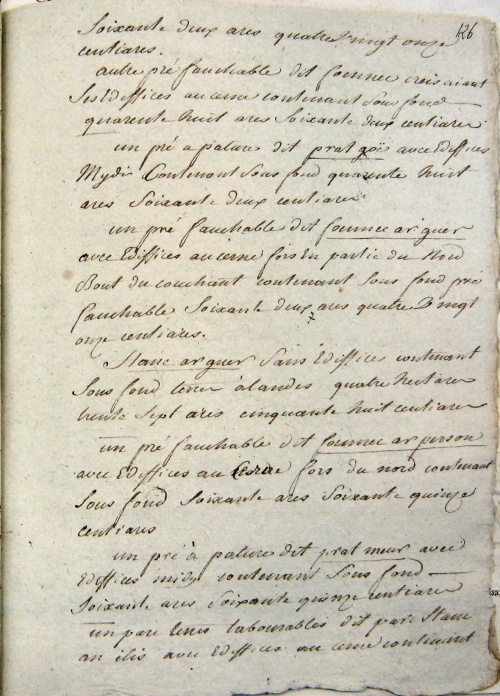 126
Soixante deux ares quatre vingt onze
centiares.
autre pré fauchable dit foennec creis aient
Ses Ediffices au cerne contenant Sous fond
quarente huit ares Soixante deux centiares
un pré a pature dit prat goë avec Ediffices
Mydi Contenant Sous fond quarente huit
ares Soixante deux centiares
un pré fauchable dit foennec ar guer
avec Ediffices au cerne fors En partie du Nord
Bout du couchant contenant Sous fond pré
fauchable Soixante deux ares quatre Vingt
onze centiares.
Stanc ar guer Sans Ediffices contenant
Sous fond terre à landes quatre hectares
trente Sept ares cinquante huit centiares
un pré fauchable dit foennec ar person
avec Ediffices au Cerne fors du nord contenant
Sous fond Soixante ares Soixante quinze
centiares
un pré à pature dit prat meur avec
Ediffices midy contenant Sous fond
Soixante ares Soixante quinze centiares
un parc terres labourables dit parc Stanc
an ilis avec Ediffices au cerne contenant